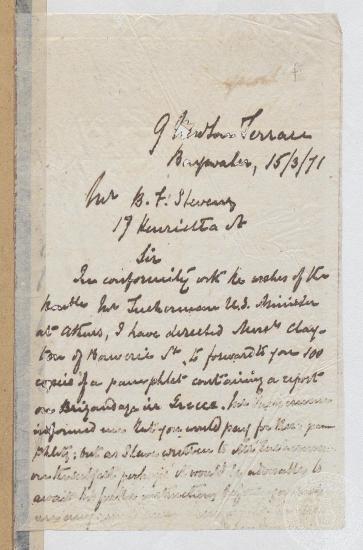 9 Newton Terrace
Bayswater, 15/3/71
Mr B. F. Stevens
17 Henrietta St
Sir
In conformity with the wishes of the
Honble Mr Tuckerman U.S. Minister
at Athens, I have directed Messrs Clay-
ton of Bouverie St, to forward to you 100
copies of a pamphlet containing a report
on Brigandage in Greece. Mr Tuckerman
informed me that you would pay for these pam-
phlets; but as I have written to Mr Tuckerman
on the subject perhaps it would be advisable to
await his further instructions before